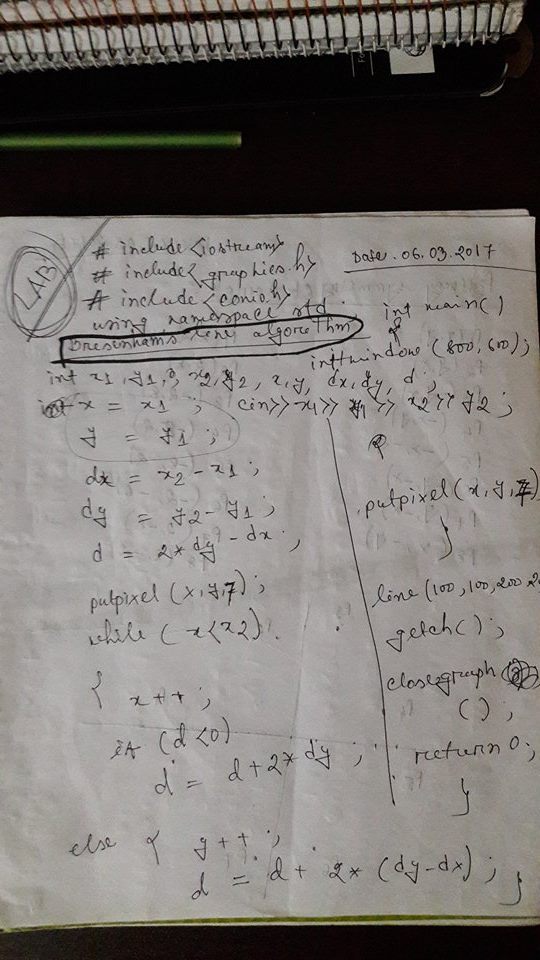 LAB
# include <iostream>
# include <graphics.h>
# include <conio.h>
using namespace std.
Date. 06.03.2017
Bresenhams line algorithm
int main()
{
initwindow (800, 600);
int x1, y1, x2, y2, x, y, dx, dy, d;
x = x1 ; cin>> x1 >> y1 >> x2 >> y2 ;
y = y1 ;
dx = x2 - x1 ;
dy = y2 - y1 ;
d = 2* dy - dx ;
putpixel (x,y,7) ;
while (x<x2)
{
x++ ;
if (d<0)
d = d + 2* dy ;
else { y++ ;
d = d + 2* (dy-dx) ; }
putpixel (x, y, 7)
}
line (100, 100, 200, 2
getch() ;
closegraph
() ;
return 0;
}